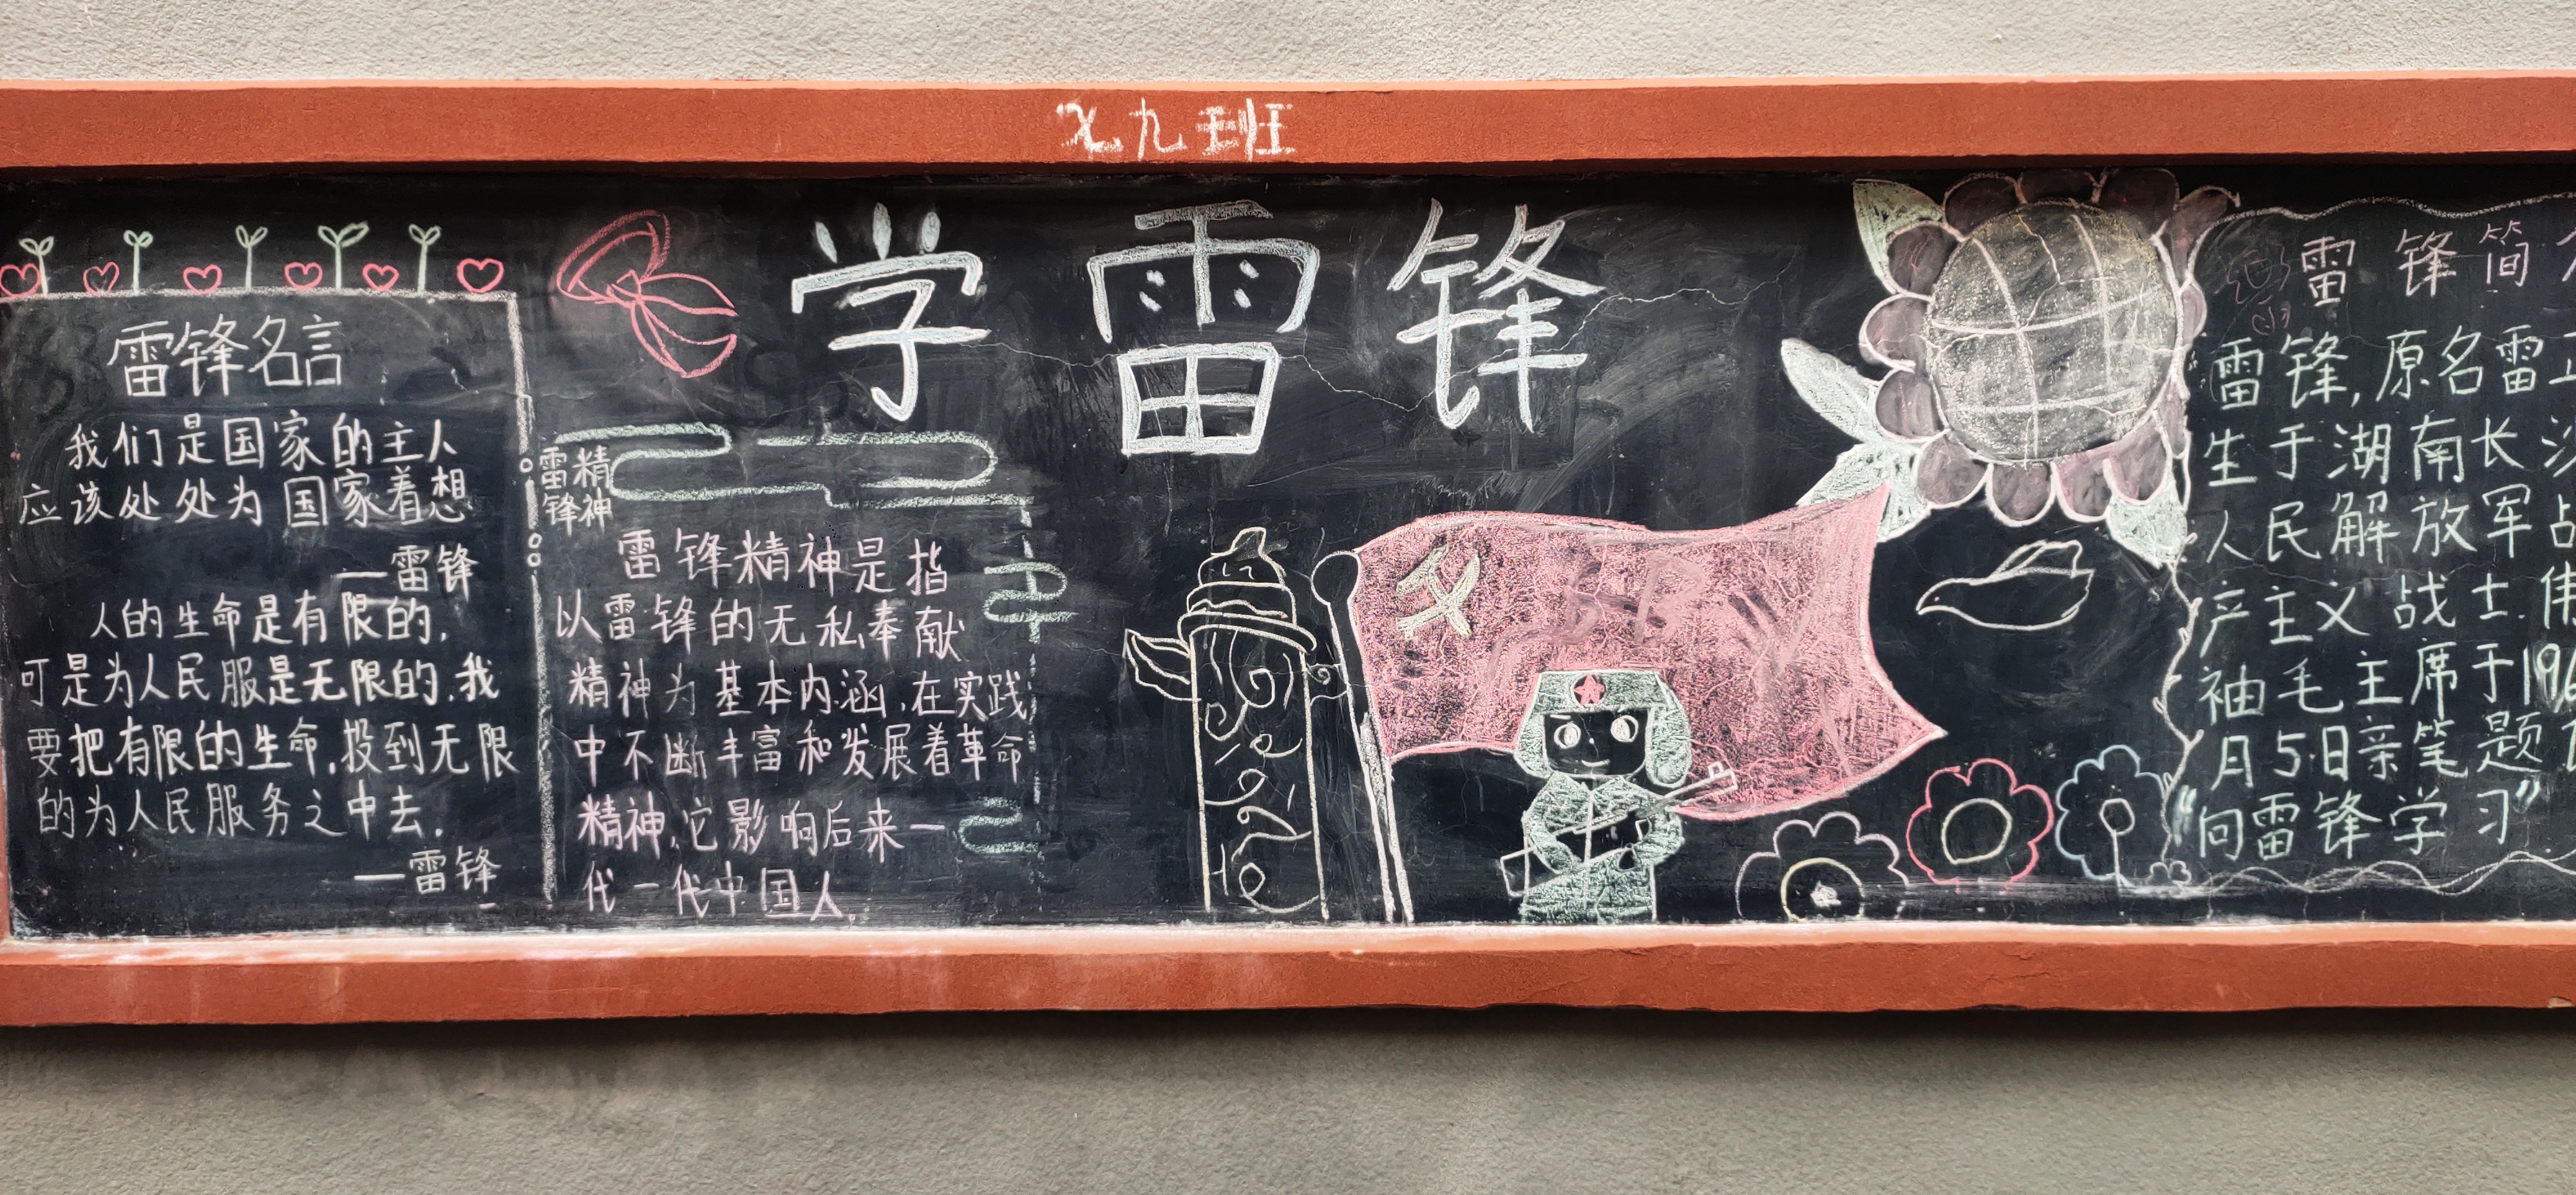 九班
学雷锋
雷锋名言
我们是国家的主人
应该处处为国家着想
—雷锋
人的生命是有限的,
可是为人民服是无限的,我
要把有限的生命,投到无限
的为人民服务之中去.
—雷锋
雷锋
精神
雷锋精神是指
以雷锋的无私奉献
精神为基本内涵,在实践
中不断丰富和发展着革命
精神,它影响后来一
代一代中国人。
雷锋简
雷锋,原名雷
生于湖南长
人民解放军
产主义战士
袖毛主席于19
月5日亲笔题
"向雷锋学习"